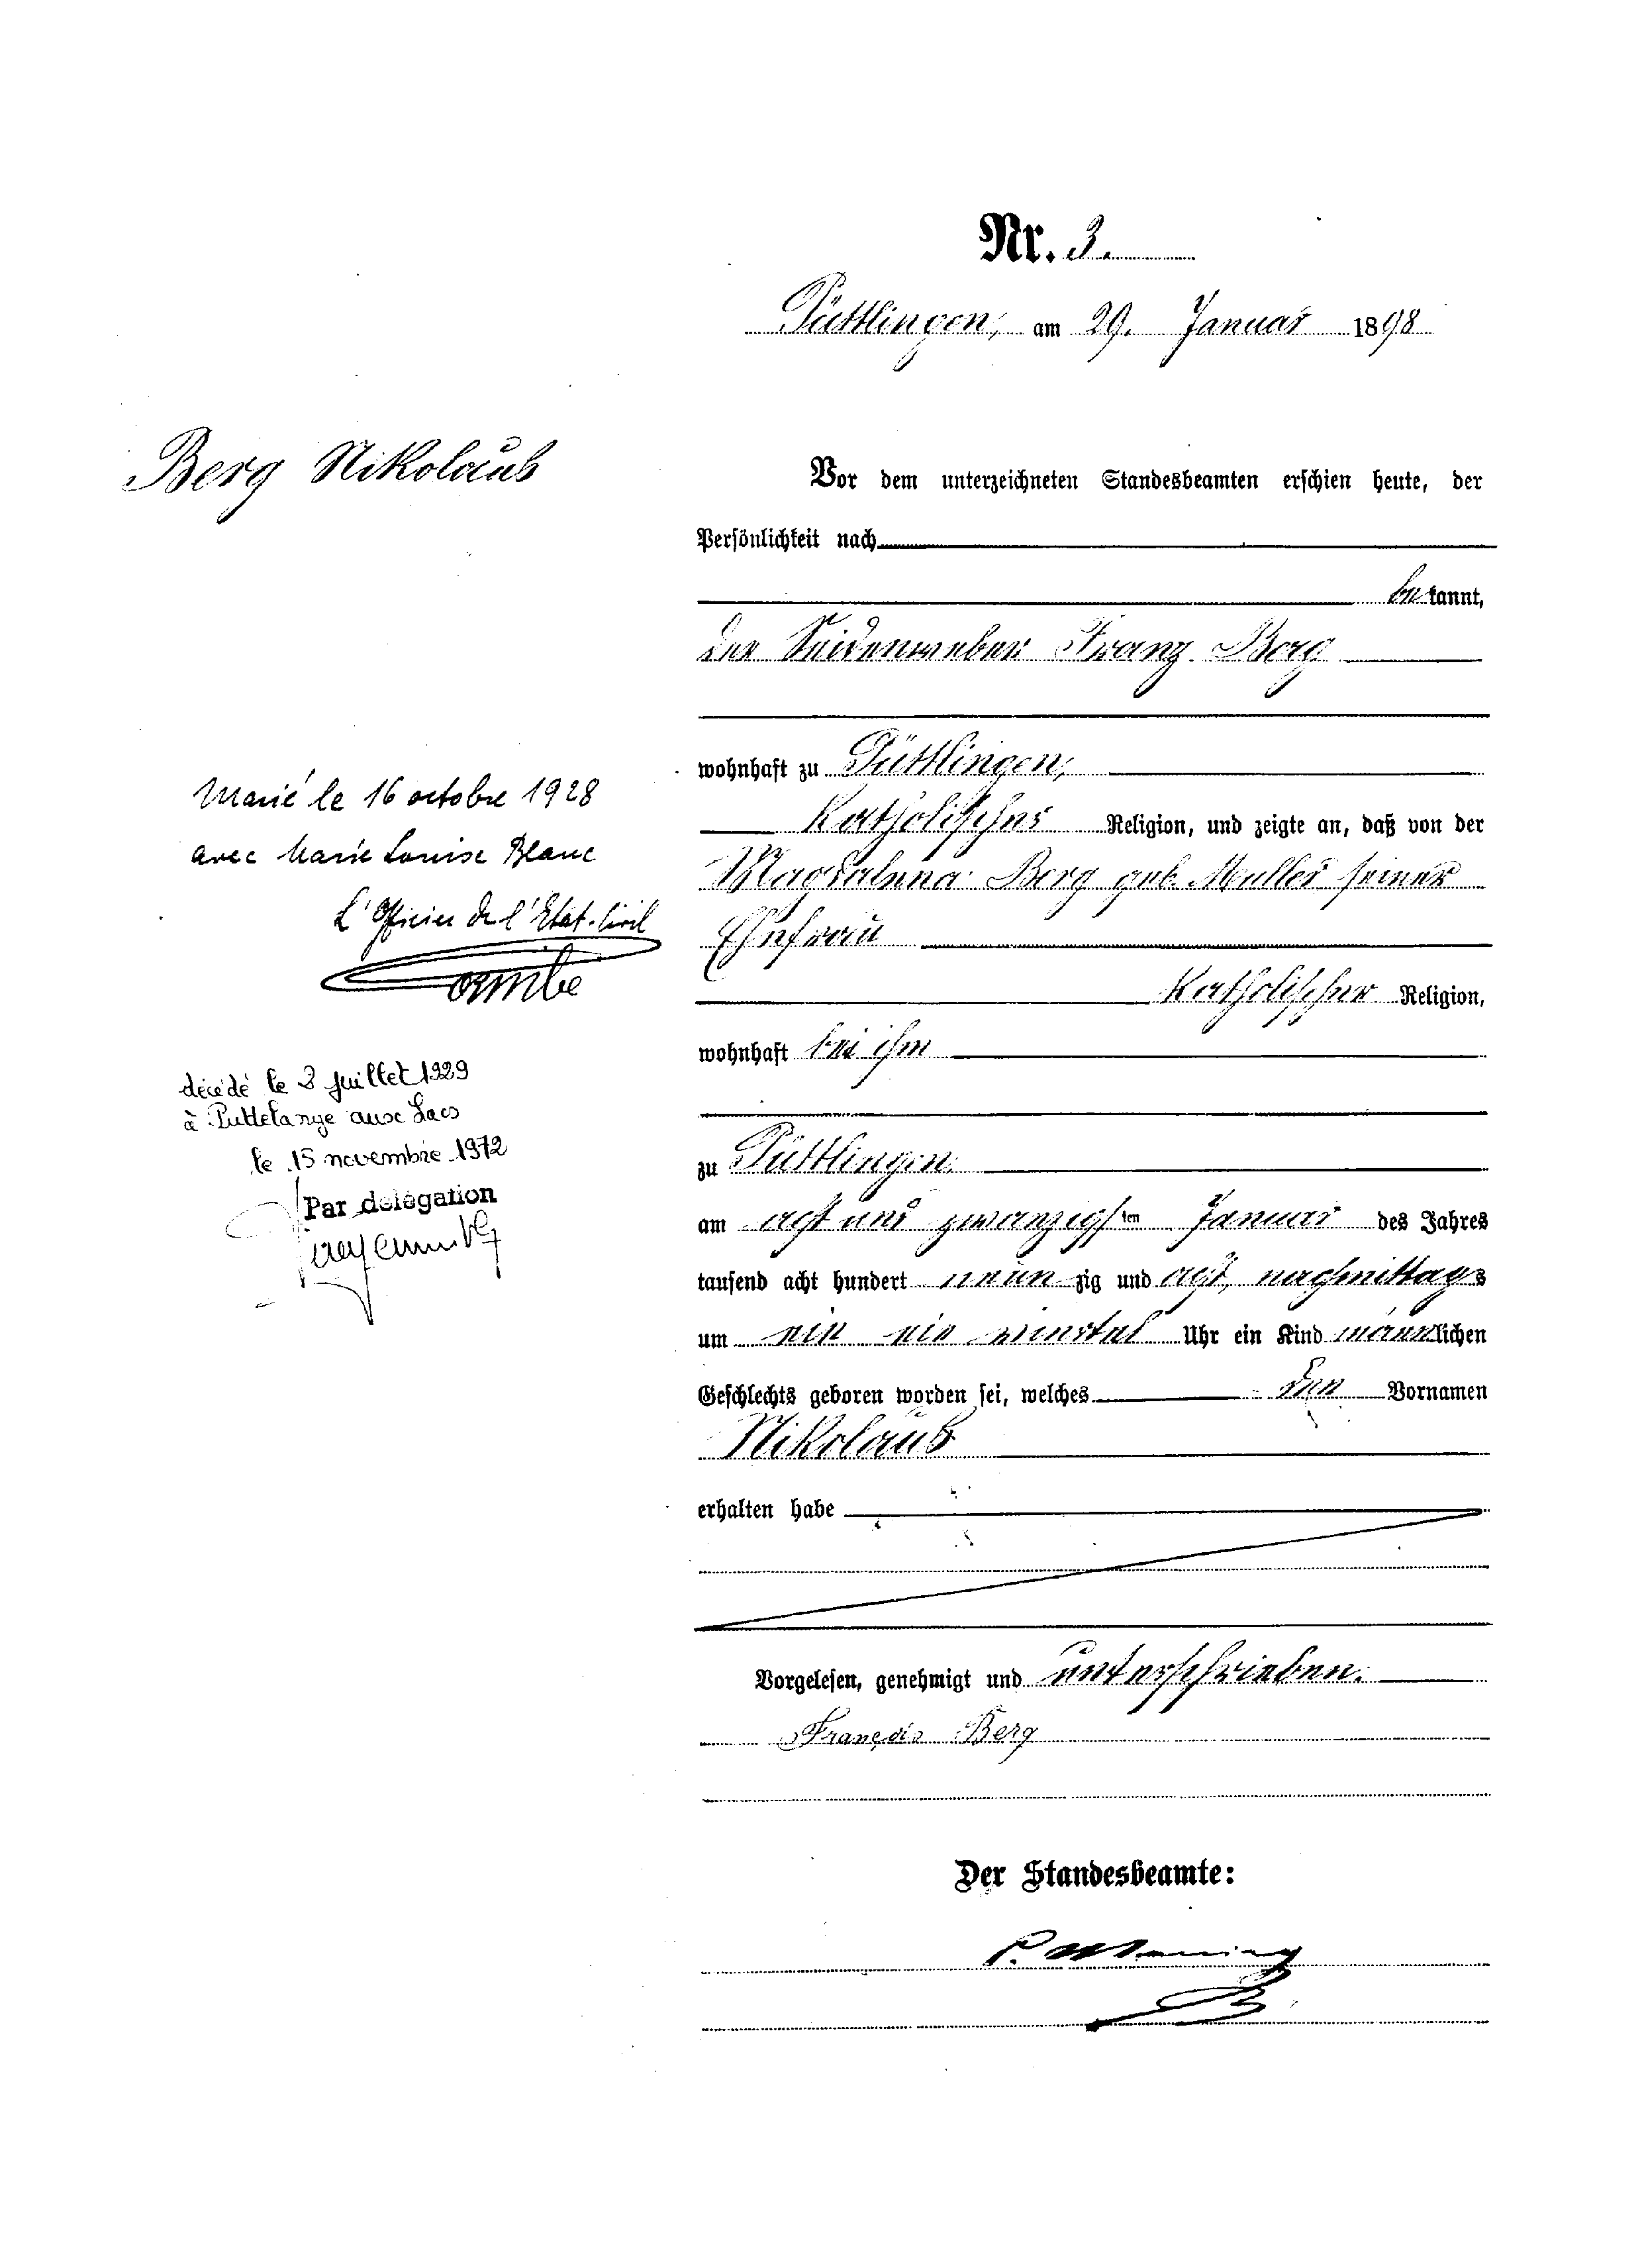 Nr. 3.
Püttlingen, am 29. Januar 1898
Berg Nikolaus
Vor dem unterzeichneten Standesbeamten erschien heute, der
Persönlichkeit nach
bekannt,
der Seidenweber Franz Berg
wohnhaft zu Püttlingen,
Katholischer Religion, und zeigte an, daß von der
Magdalena Berg geb. Muller seiner
Ehefrau
Katholischer Religion,
wohnhaft bei ihm
zu Püttlingen
am acht und zwanzigsten Januar des Jahres
tausend acht hundert neun zig und acht, nachmittags
um ein ein viertel Uhr ein Kind männlichen
Geschlechts geboren worden sei, welches den Vornamen
Nikolaus
erhalten habe
Vorgelesen, genehmigt und unterschrieben.
François Berg
Der Standesbeamte:
Marié le 16 octobre 1928
avec Marie Louise Blanc
L'Officier de l'Etat-Civil
décédé le 3 juillet 1929
à Puttelange aux Lacs
le 15 novembre 1972
Par délégation